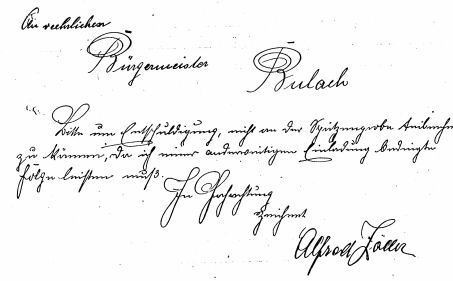 An verehrlichen
Bürgermeister Bulach
Bitte um Entschuldigung, nicht an der Spritzenprobe Teilnehmen
zu können, da ich einer anderweitigen Einladung bedingte
Folge leisten muß.
In Hochachtung
Zeichnet
Alfred Zöller